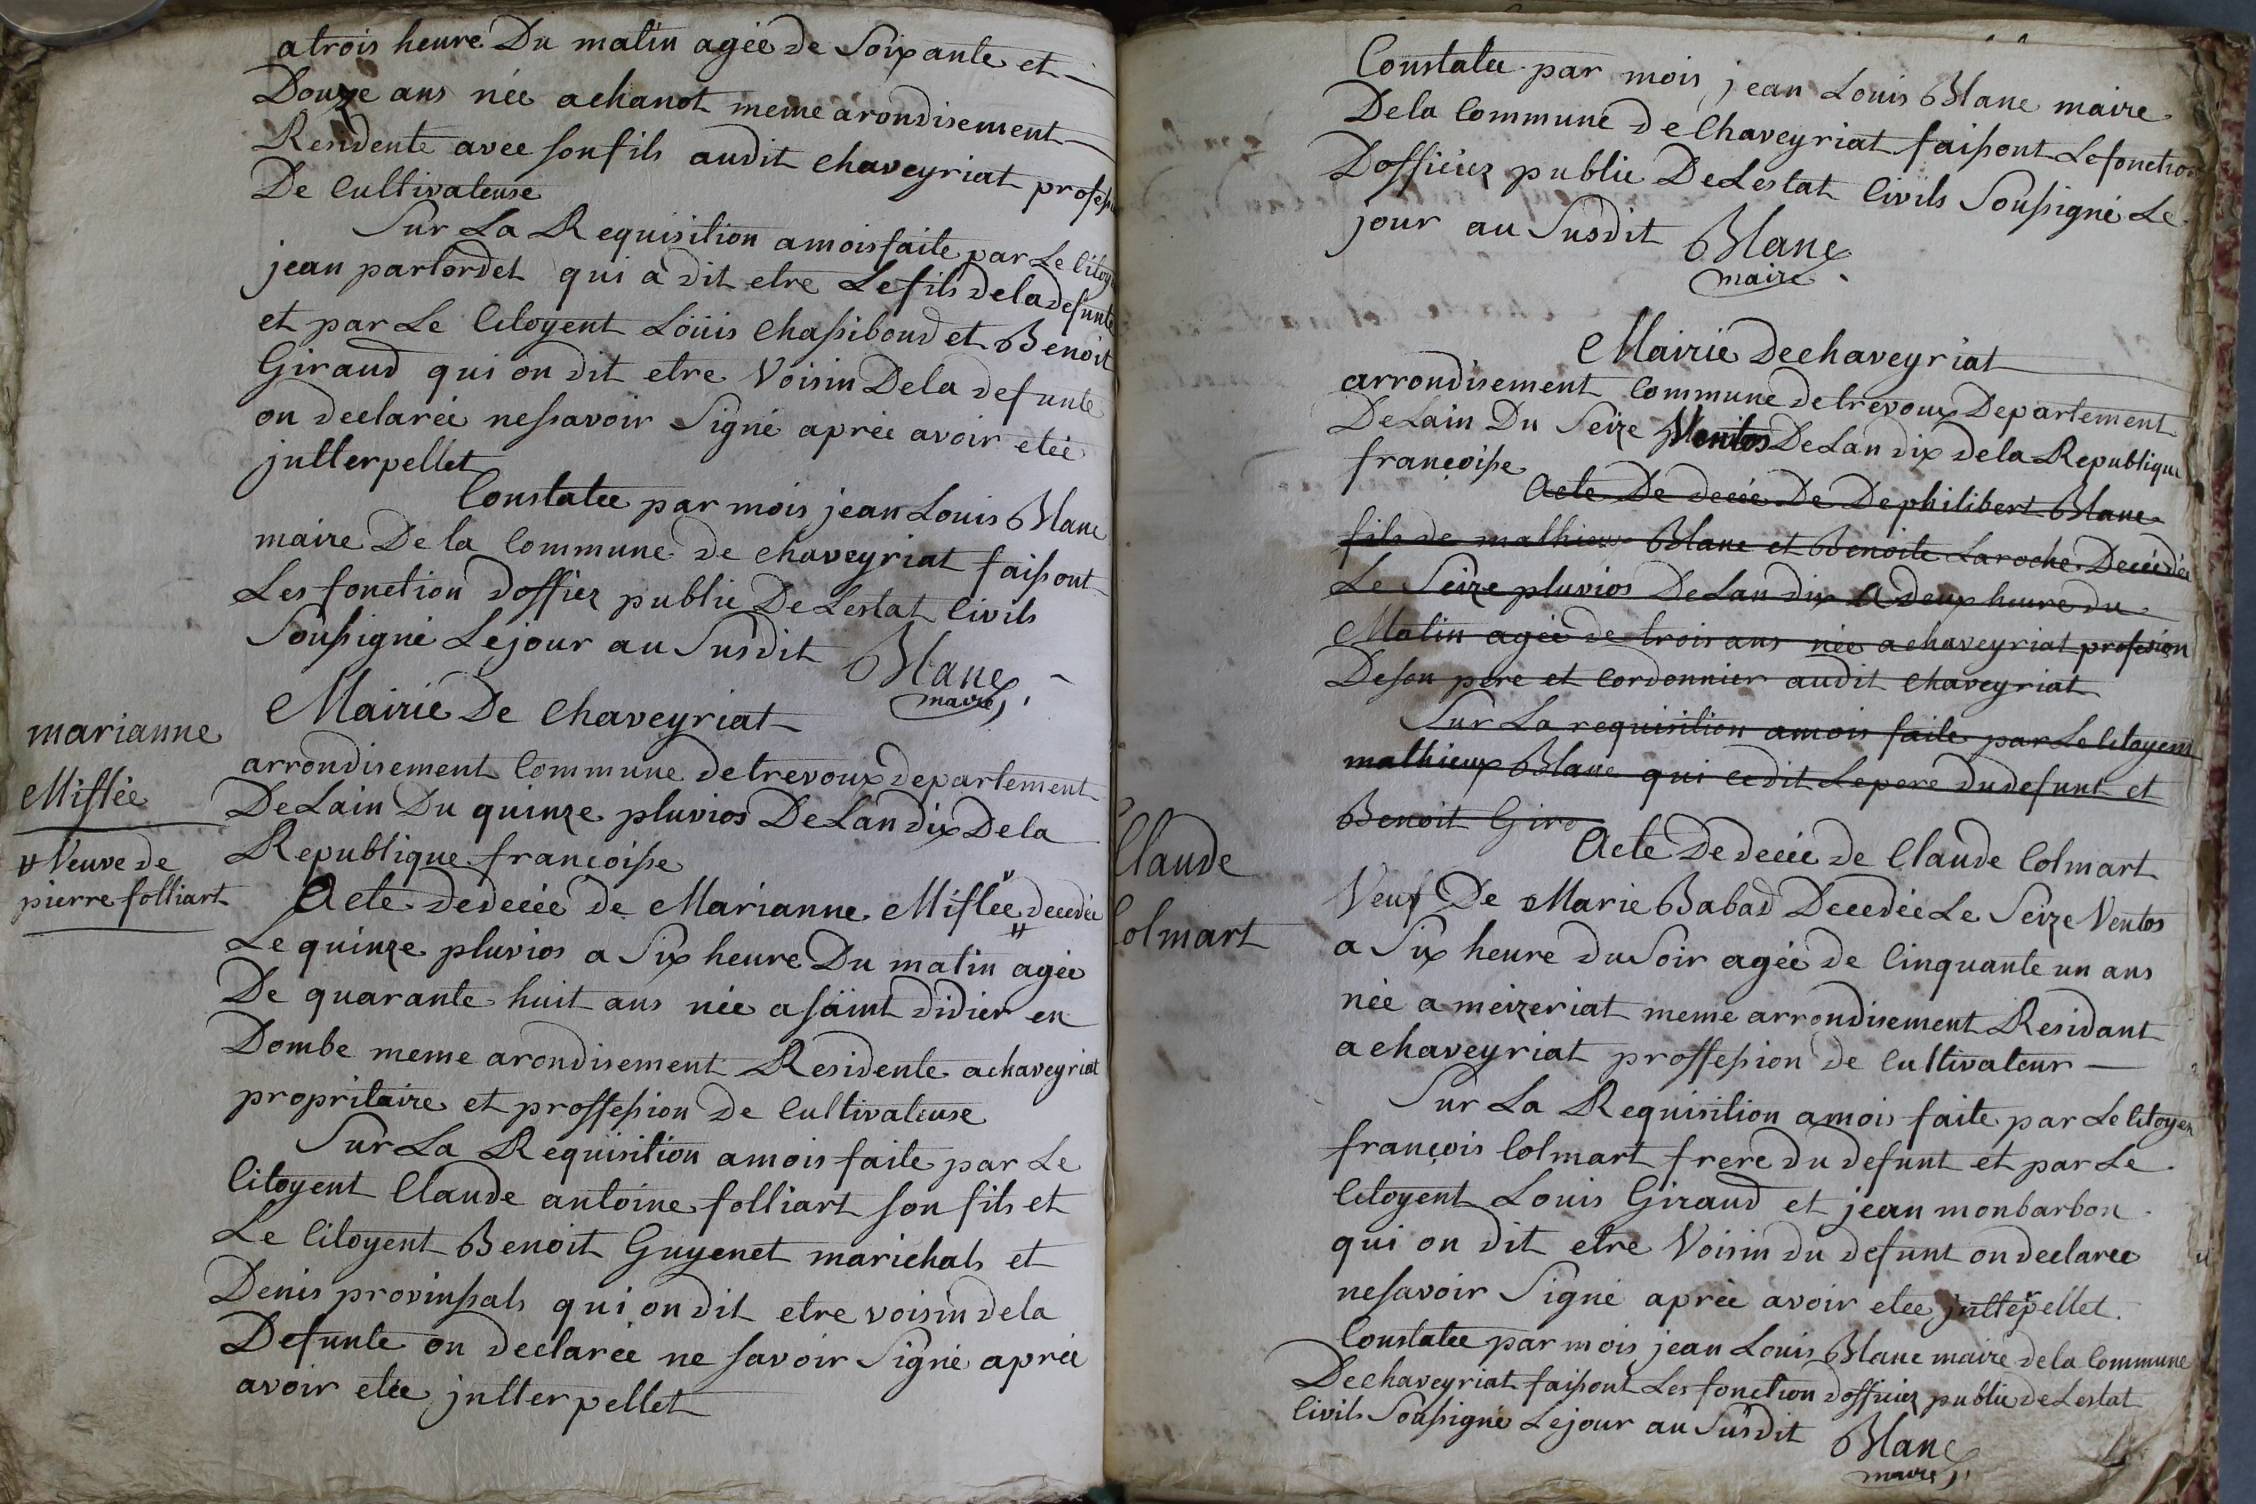 atrois heure Du matin agée de Soixante et
Douze ans née achanot meme arondisement
Residente avec son fils audit chaveyriat profess
De Cultivateuse
Sur La Requisition amois faite par Le Citoy
jean partordet qui a dit etre Le fils dela defunte
et par Le Citoyent Loüis Chassiboud et Benoit
Giraud qui on dit etre Voisin Dela defunte
on declarée nessavoir Signé aprée avoir etée
jntterpellet
Constatee par mois jean Louis Blanc
maire De la Commune de chaveyriat faisont
Les fonction doffiez public De Lestat Civils
Soussigné Le jour au Susdit Blanc
maire
Mairie De Chaveyriat
marianne
Miflée
arrondisement Commune detrevoux departement
De Lain Du quinze pluvios De Lan dix De la
Republique françoisse
" Veuve de
pierre folliart
Acte dedecée de Marianne Miflée " decedée
Le quinze pluvios a Six heure Du matin agée
De quarante huit ans née a saint didier en
Dombe meme arondisement Residente achaveyriat
propritaire et proffession de Cultivateuse
Sur La Requisition amois faite par Le
Citoyent Claude antoine folliart son fils et
Le Citoyent Benoit Guyenet marichals et
Denis provinssals qui on dit etre voisin dela
Defunte on declarée ne savoir Signé aprée
avoir etée jntterpellet
Constatee par mois jean Louis Blanc maire
De la Commune de Chaveyriat faisont Le fonction
Dofficiez public De Lestat Civils Soussigné Le
jour au Susdit Blanc
maire
Mairie De chaveyriat
arrondisement Commune detrevoux Departement
De Lain Du Seize Ventos De Lan dix dela Republique
françoisse
Acte De decée De De philibert Blanc
fils de mathieu Blanc et Benoite Laroche Decedée
Le Seize pluvios De Lan dix A deux heure du
Matin agée de trois ans née a chaveyriat profesion
De son pere et Cordonnier audit chaveyriat
Sur La requisition amois faite par Le Citoyent
mathieux Blanc qui cedit Le pere du defunt et
Benoit Giro
Claude
Colmart
Acte De decée de Claude Colmart
Veuf De Marie Babad Decedée Le Seize Ventos
a Six heure du Soir agée de Cinquante un ans
née a meizeriat meme arrondisement Residant
a chaveyriat proffession de Cultivateur
Sur La Requisition amois faite par Le Citoyen
françois Colmart frere du defunt et par Le
Citoyent Louis Giraud et jean monbarbon
qui on dit etre Voisin du defunt on declaree
nesavoir Signé aprée avoir etée jntterpellet
Constatee par mois jean Louis Blanc maire dela Commune
De chaveyriat faisont Les fonction dofficiez public de Lestat
Civils Soussigné Le jour au Susdit Blanc
maire